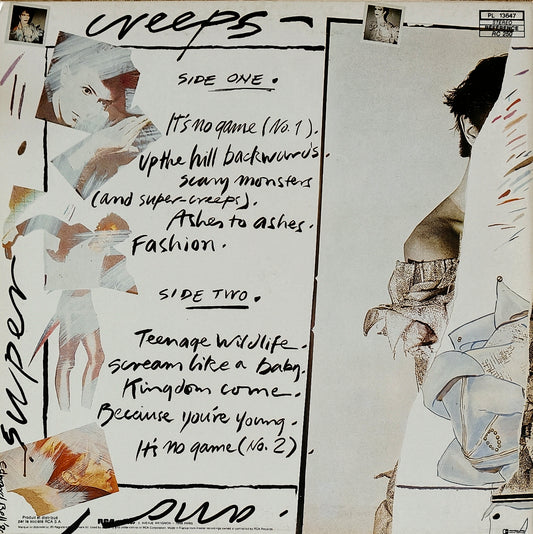 creeps
PL 13647
STEREO
SIDE ONE.
It's no game (No. 1).
Up the hill backwards.
Scary monsters
(and super-creeps).
Ashes to ashes.
Fashion.
SIDE TWO.
Teenage wildlife.
Scream like a baby.
Kingdom come.
Because you're young.
It's no game (No. 2).
super
Produit et distribué
par la société RCA S.A.
RCA